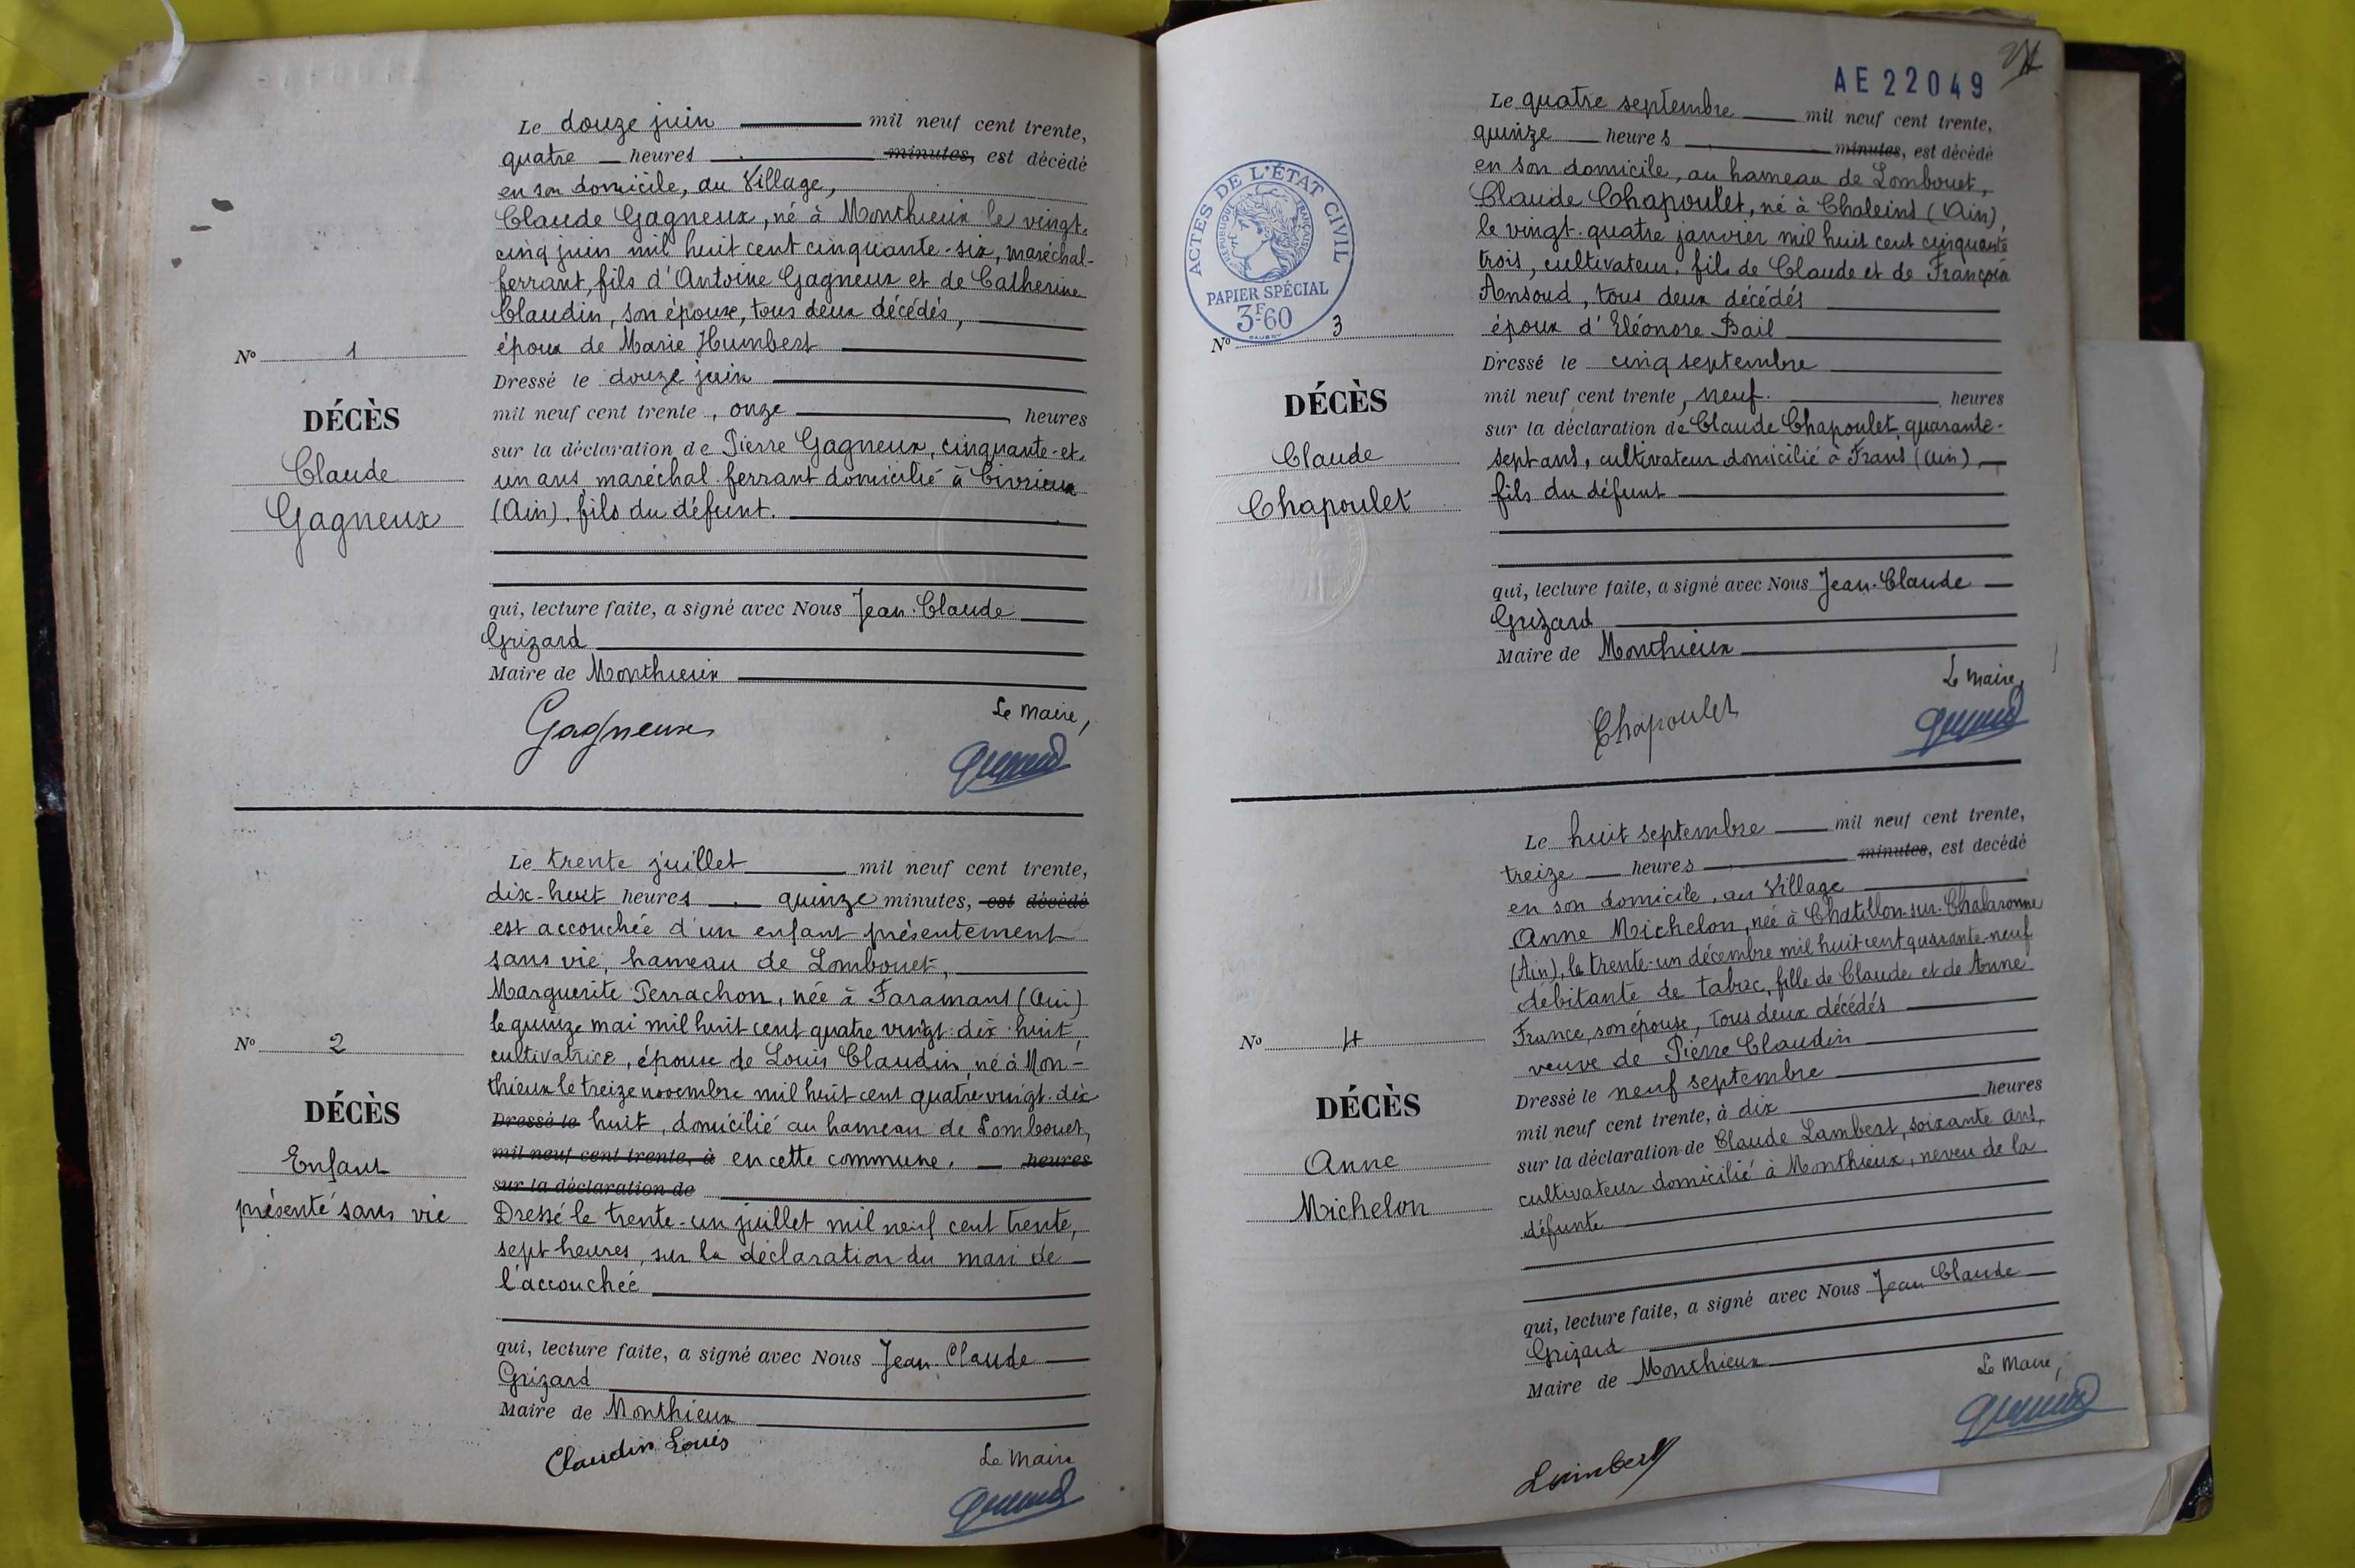 Le douze juin mil neuf cent trente,
quatre heures minutes, est décédé
en son domicile, au Village,
Claude Gagneux, né à Monthieux le vingt-
cinq juin mil huit cent cinquante-six, maréchal-
ferrant, fils d'Antoine Gagneux et de Catherine
Claudin, son épouse, tous deux décédés,
époux de Marie Humbert
Dressé le douze juin
mil neuf cent trente, onze heures
sur la déclaration de Pierre Gagneux, cinquante-et-
un ans, maréchal-ferrant domicilié à Civrieux
(Ain), fils du défunt.
qui, lecture faite, a signé avec Nous Jean-Claude
Grizard
Maire de Monthieux
Le Maire,
Gagneux
N° 1
DÉCÈS
Claude
Gagneux
Le trente juillet mil neuf cent trente,
dix-huit heures quinze minutes, est décédé
est accouchée d'un enfant présentement
sans vie, hameau de Lombouet,
Marguerite Perrachon, née à Faramans (Ain)
le quinze mai mil huit cent quatre vingt-dix-huit,
cultivatrice, épouse de Louis Claudin, né à Mon-
thieux le treize novembre mil huit cent quatre vingt-dix
Dressé le huit, domicilié au hameau de Lombouet,
mil neuf cent trente, à en cette commune. heures
sur la déclaration de
Dressé le trente-un juillet mil neuf cent trente,
sept heures, sur la déclaration du mari de
l'accouchée
qui, lecture faite, a signé avec Nous Jean-Claude
Grizard
Maire de Monthieux
Claudin Louis
Le Maire
N° 2
DÉCÈS
Enfant
présenté sans vie
AE22049
Le quatre septembre mil neuf cent trente,
quinze heures minutes, est décédé
en son domicile, au hameau de Lombouet,
Claude Chapoulet, né à Chaleins (Ain),
le vingt-quatre janvier mil huit cent cinquante
trois, cultivateur, fils de Claude et de
Ansoud, tous deux décédés
époux d'Eléonore Bail
Dressé le cinq septembre
mil neuf cent trente, neuf heures
sur la déclaration de Claude Chapoulet, quarante-
sept ans, cultivateur domicilié à Frans (Ain),
fils du défunt
qui, lecture faite, a signé avec Nous Jean-Claude
Grizard
Maire de Monthieux
Le Maire,
Chapoulet
ACTES DE L'ÉTAT CIVIL
RÉPUBLIQUE FRANÇAISE
PAPIER SPÉCIAL
3F60
N° 3
DÉCÈS
Claude
Chapoulet
Le huit septembre mil neuf cent trente,
treize heures minutes, est décédé
en son domicile, au Village
Anne Michelon, née à Chatillon-sur-Chalaronne
(Ain), le trente-un décembre mil huit cent quarante-neuf
débitante de tabac, fille de Claude et de Anne
France, son épouse, tous deux décédés
veuve de Pierre Claudin
Dressé le neuf septembre
mil neuf cent trente, à dix heures
sur la déclaration de Claude Lambert, soixante ans,
cultivateur domicilié à Monthieux, neveu de la
défunte
qui, lecture faite, a signé avec Nous Jean Claude
Grizard
Maire de Monthieux
Le Maire,
Lambert
N° 4
DÉCÈS
Anne
Michelon